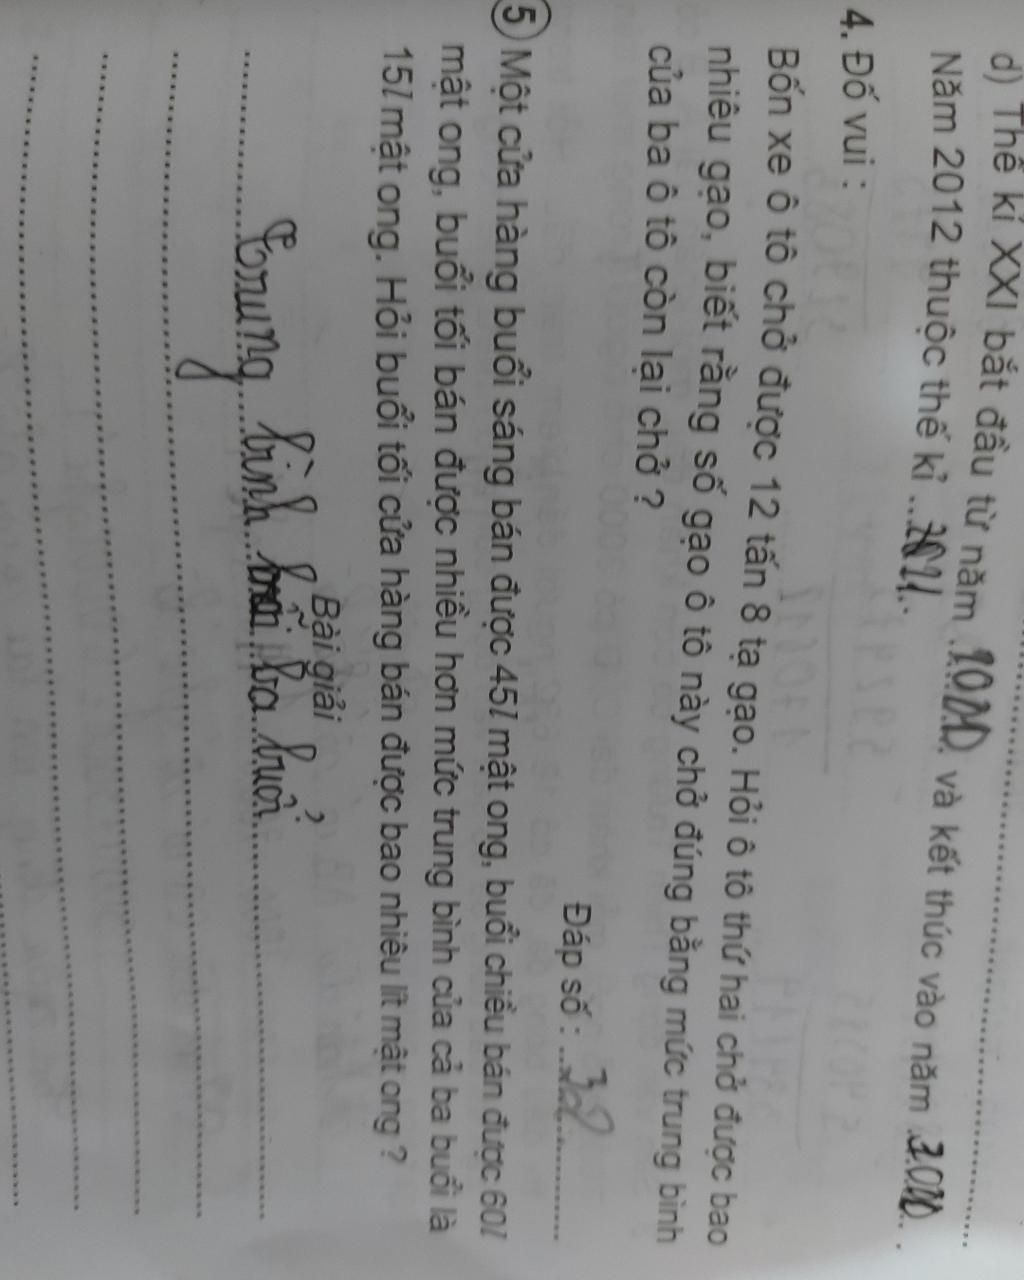 d) Thế kỉ XXI bắt đầu từ năm ......... và kết thúc vào năm .........
Năm 2012 thuộc thế kỉ .........
4. Đố vui :
Bốn xe ô tô chở được 12 tấn 8 tạ gạo. Hỏi ô tô thứ hai chở được bao
nhiêu gạo, biết rằng số gạo ô tô này chở đúng bằng mức trung bình
của ba ô tô còn lại chở ?
Đáp số : .........
5 Một cửa hàng buổi sáng bán được 45l mật ong, buổi chiều bán được 60l
mật ong, buổi tối bán được nhiều hơn mức trung bình của cả ba buổi là
15l mật ong. Hỏi buổi tối cửa hàng bán được bao nhiêu lít mật ong ?
Bài giải
Trung bình ba buổi